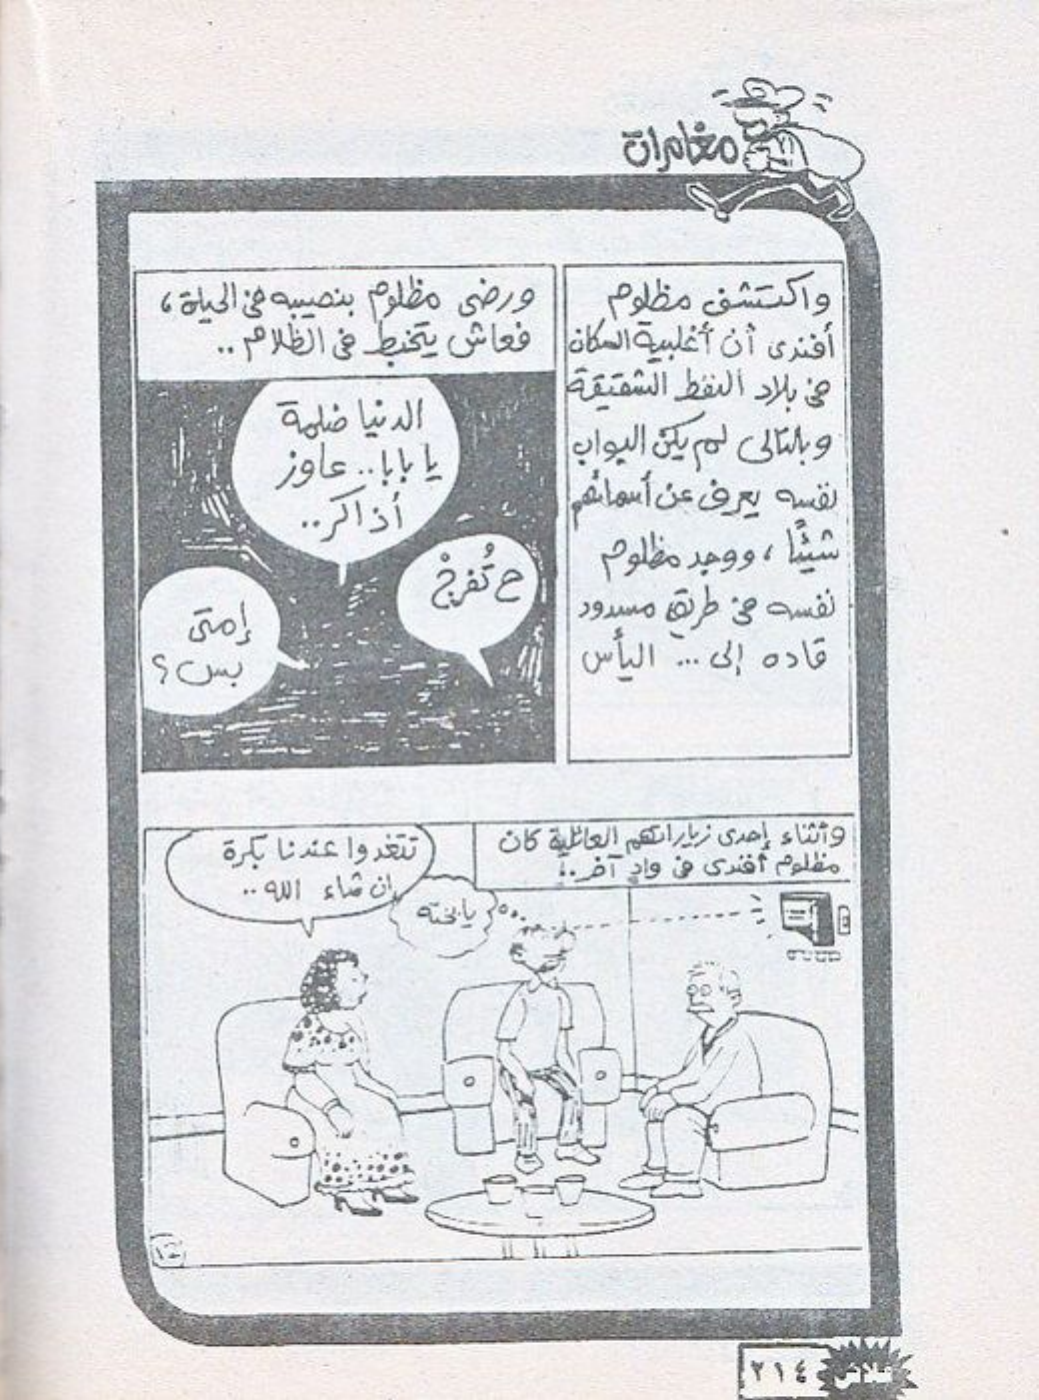 مغامرات
واكتشف مظلوم
أفندى أن أغلبية السكان
فى بلاد النفط الشقيقة
وبالتالى لم يكن البواب
نفسه يعرف عن أسمائهم
شيئًا ، ووجد مظلوم
نفسه فى طريق مسدود
قاده إلى ... اليأس
ورضى مظلوم بنصيبه فى الحياة ،
فعاش يتخبط فى الظلام ..
الدنيا ضلمة
يا بابا .. عاوز
أذاكر ..
ح تُفرجْ
إمتى
بس ؟
وأثناء إحدى زياراتهم العائلية كان
مظلوم أفندى فى وادٍ آخر ..!
تتغدوا عندنا بكرة
إن شاء الله ..
يا بخته
فلاش
٢١٤